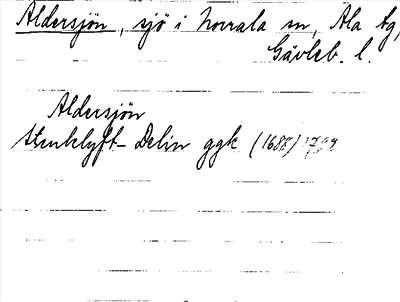 Aldersjön, sjö i Norrala sn, Ala tg,
Gävleb. l.
Aldersjön
Stenklyft-Delin ggk (1688) 1798